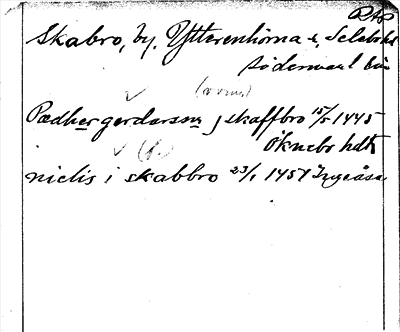 RAp
Skabro, by. Ytterenhörna s, Selebo hd
Södermanl. län
Pædher gerdarson j skaffbro 15/5 1445
Öknebo hdt
niclis i skabbro 23/1 1454